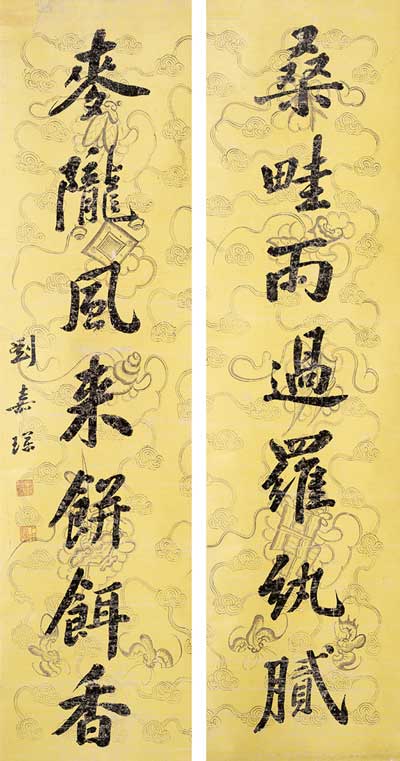 桑畦雨過羅紈膩
麥隴風来餅餌香
劉嘉琛